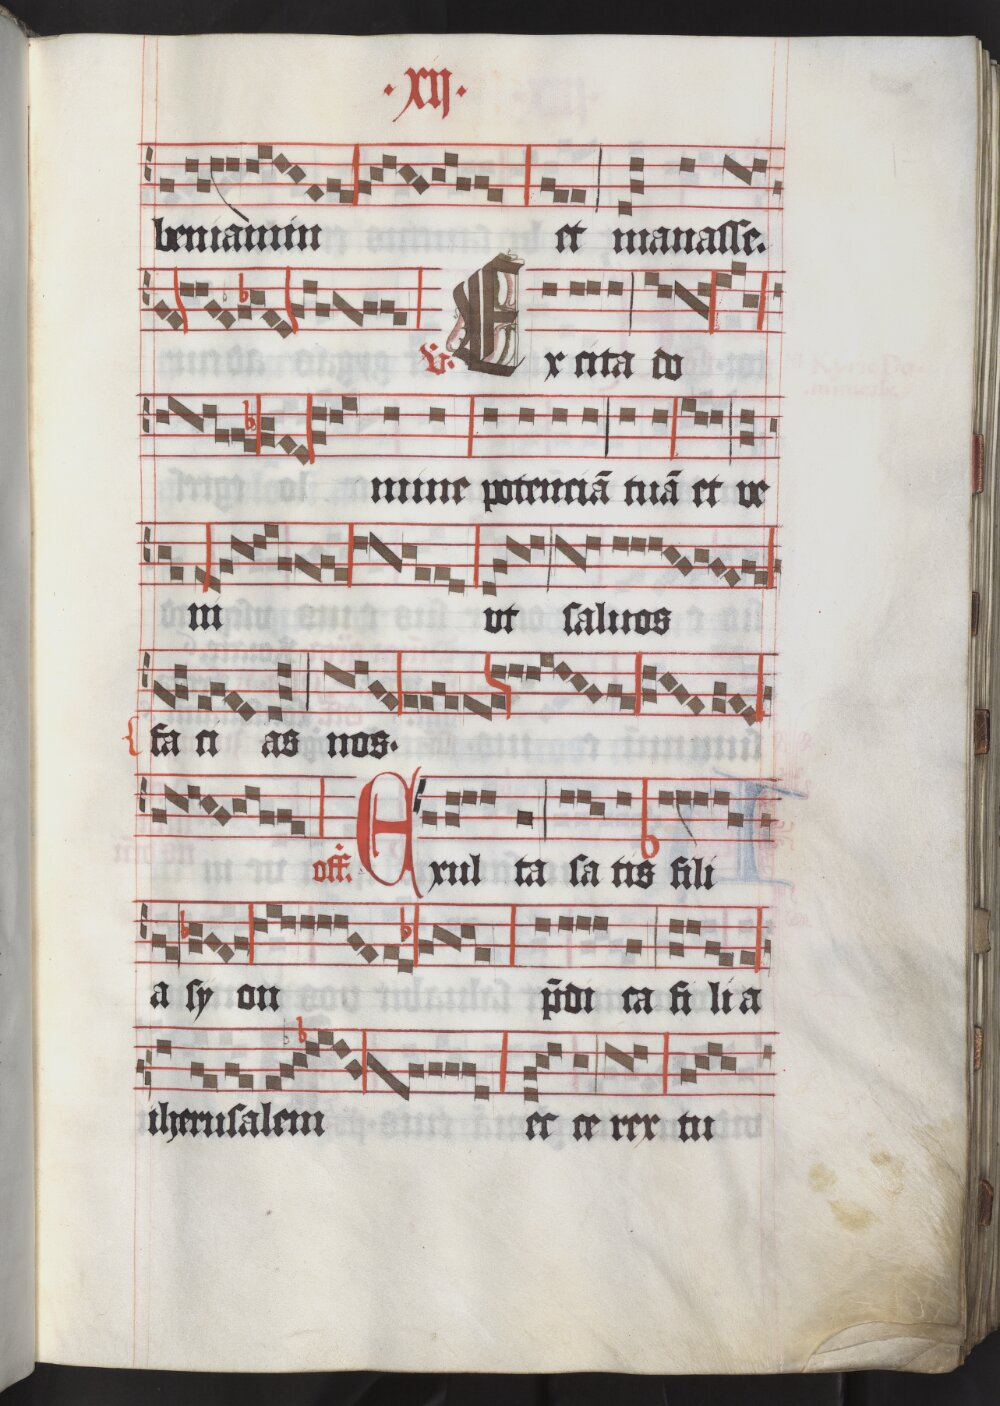 ·xij·
beniamin et manasse.
V. Excita do
mine potenciā tuā et ve
ni ut saluos
faci as nos.
off. Exulta satis fili
a syon p̄dica filia
iherusalem ecce rex tu